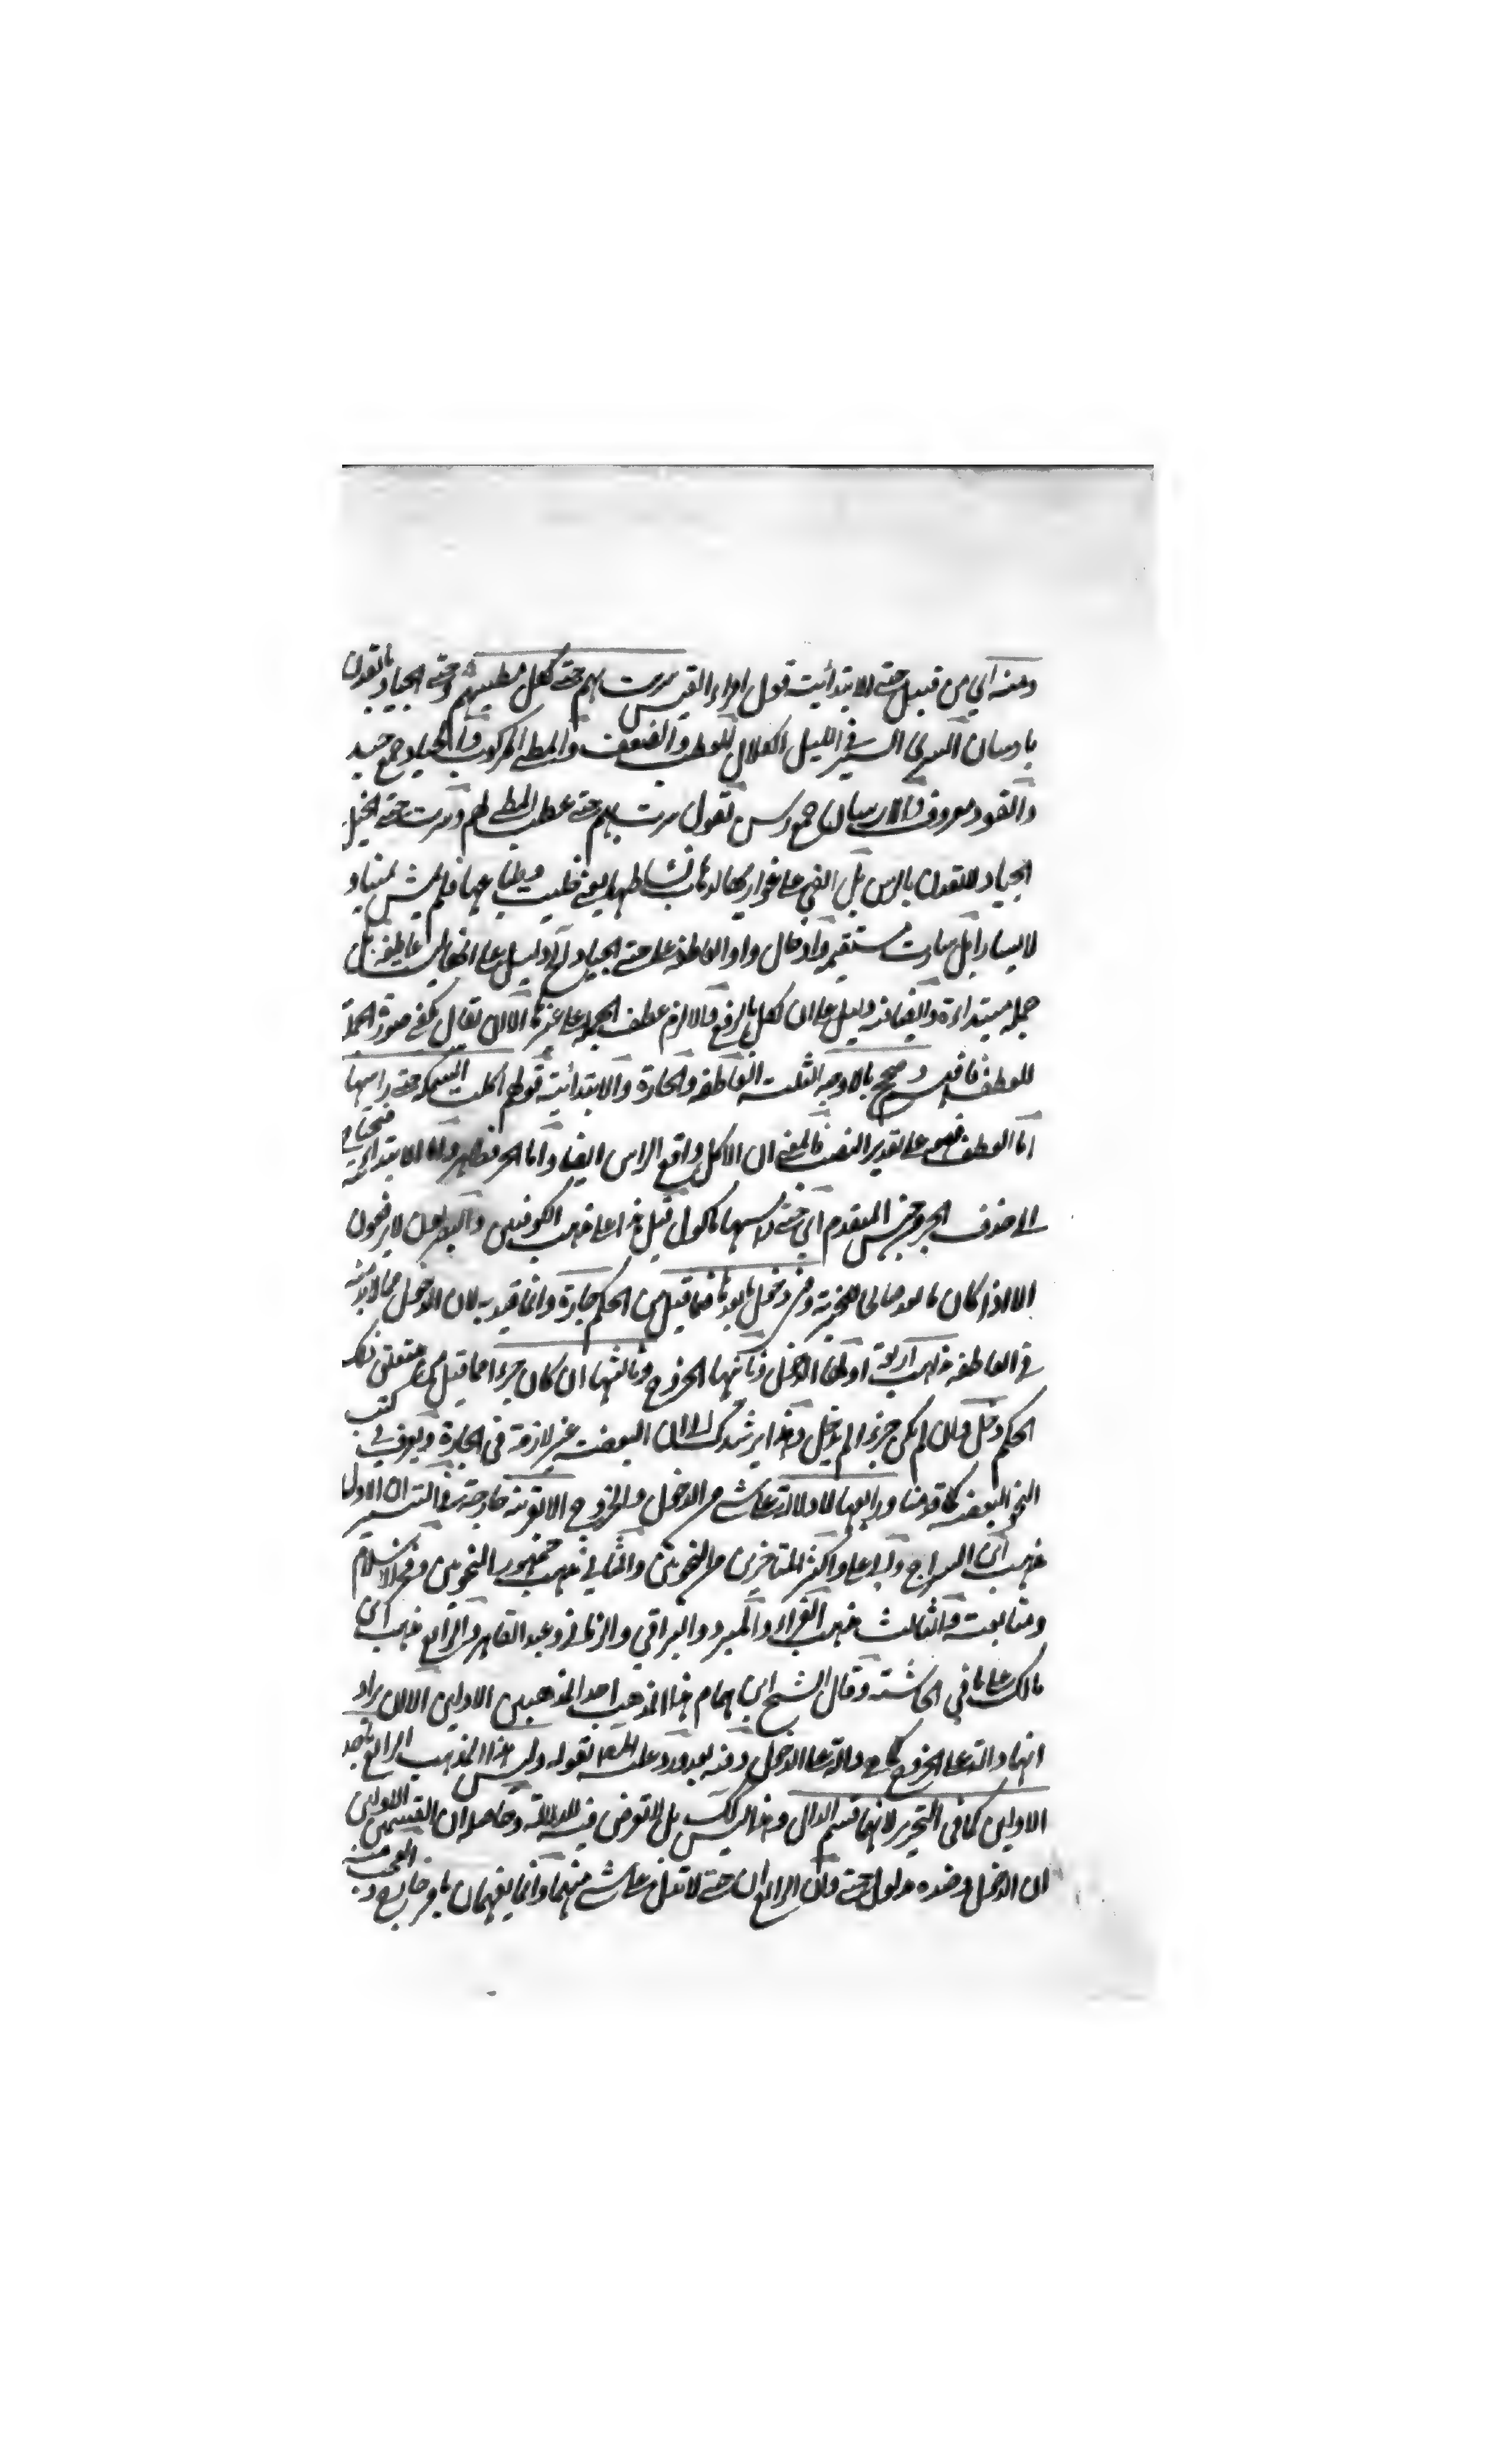 ومنه اي من قبيل حتى الابتدائية قول امراء القيس سريت بهم حتى تكل مطيهم وحتى الجياد ما يقدن
بارسان السرى السير في الليل الكلال العطب والضعف والمطي المركوب والجياد جمع جيد
والقود معروف والارسان جمع رسن تقول سرت بهم حتى عطب المطي لهم وسرت حتى الخيل
الجياد لا تقدن بالرسن بل القي على غواربها لذهاب نشاطها يعني خليت عنها فلم يمش يمينا و
لا يسارا بل سارت مستقيمة وادخال واو العاطفة على حتى الجياد الخ دليل على انها ليست عاطفة بل
جملة مبتداءة وايضا فيه دليل على ان تكل بالرفع والا لزم عطف الجملة على غيرها الا ان يقال يكفي صورة الجملة
للعطف فافهم وصح بالاوجه الثلثة العاطفة والجارة والابتدائية قولهم اكلت السمكة حتى راسها
اما العطف فهو على تقدير النصب فالمعنى ان الاكل واقع الراس ايضا واما الجر فظاهر واما الابتدائية فيحتاج
الى حذف الخبر المتقدم اي حتى راسها ماكول قيل هذا على مذهب الكوفيين والبصريون لا يرفعون
الا اذا كان ما بعد صالحا للخبرية وفي دخول ما بعدها فيما قبل من الحكم جارة وانما قيد به لان الدخول مما لا بد منه
في العاطفة مذاهب اربعة اولها الدخول وثانيها الخروج وثالثها ان كان جزءا مما قبل من متعلق ذلك
الحكم دخل وان لم يكن جزءا لم يدخل وهذا يرشدك الى ان البعضية غير لازمة في الجارة ويعرف في كتب
النحو البعضية كما قدمنا ورابعها لا دلالة على شي من الدخول والخروج الا بقرينة خارجة وفي التيسير ان الاول
مذهب ابن السراج وابي علي واكثر المتاخرين من النحويين والثاني مذهب جمهور النحويين وفخر الاسلام
ومتابعيه والثالث مذهب الفراء والمبرد والسيرافي والرماني وعبد القاهر والرابع مذهب ابن
مالك على ما في الحاشية وقال الشيخ ابن همام هذا المذهب احد المذهبين الاولين الا ان يراد
انها دالة على الخروج كما هي دالة على الدخول وفيه بعد ورد عليه المص بقوله وليس هذا المذهب الرابع باحد
الاولين كما في التحرير لانهما قسم الدال وهذا ليس كذلك بل لا تعرض فيه للدلالة وحاصله ان القسمين الاولين
ان الدخول وضده مدلول حتى وان الرابع ان حتى لا تدل على شي منهما وانما يفهمان بامر خارج و